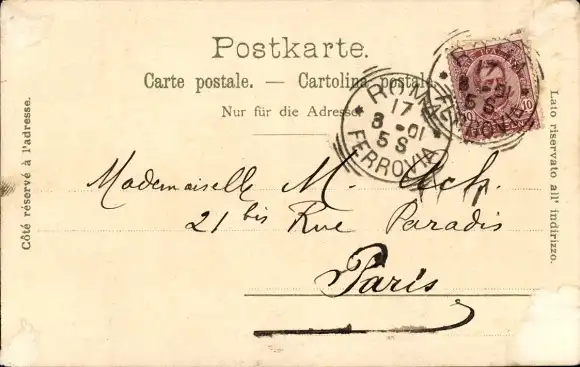 Postkarte.
Carte postale. — Cartolina postale
Nur für die Adresse
ROMA
17
8 - 01
5 S
FERROVIA
ROMA
17
5 S
FERROVIA
10
Côté réservé à l'adresse.
Lato riservato all' indirizzo.
Mademoiselle M. Ach.
21 bis Rue Paradis
Paris